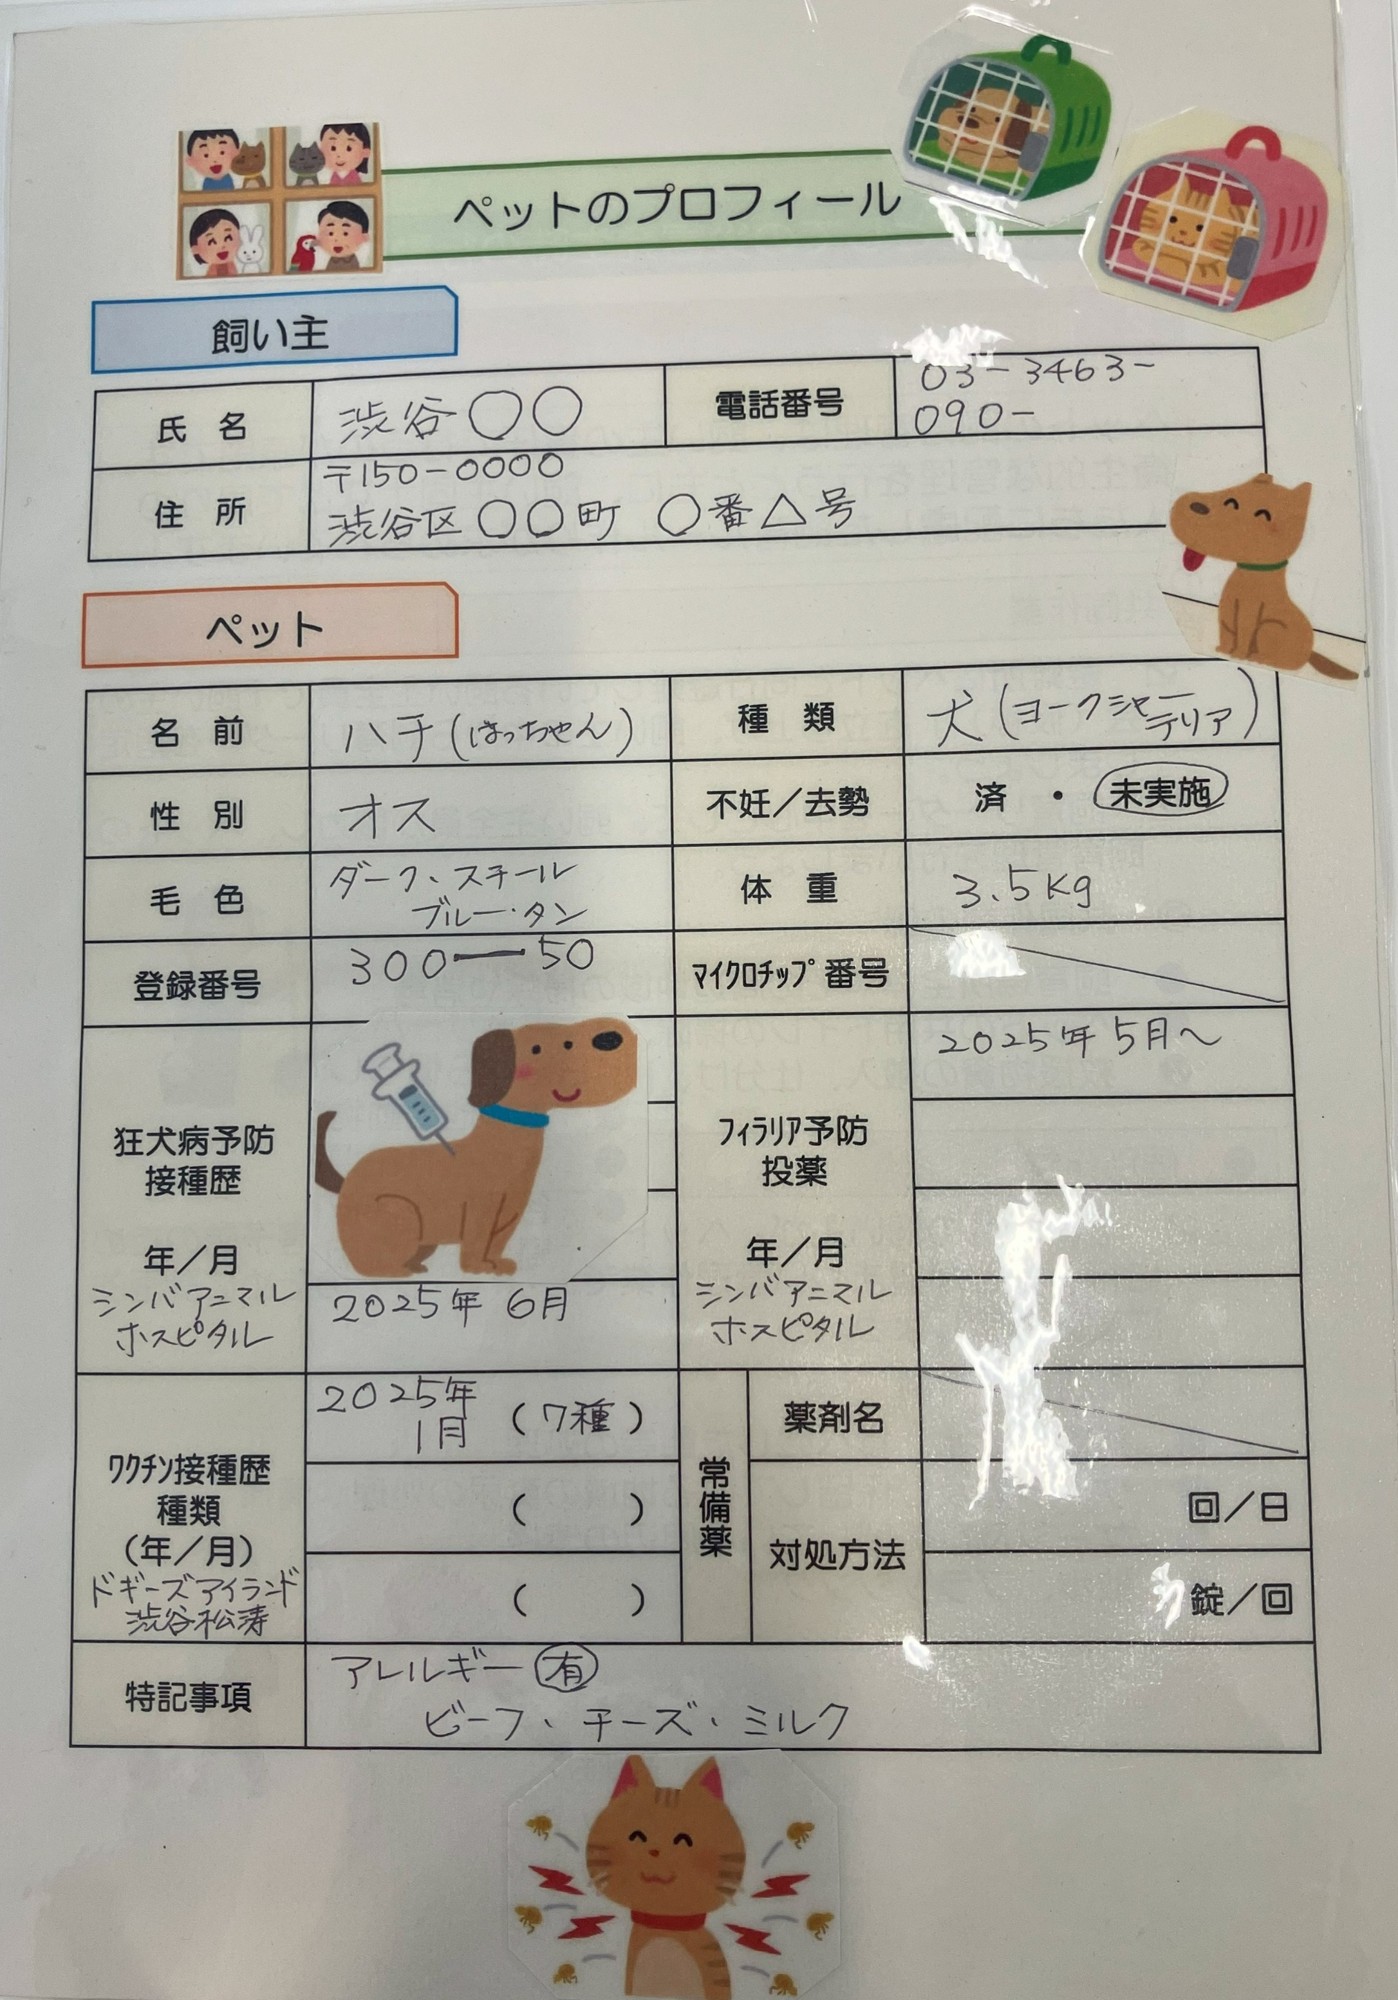 ペットのプロフィール
飼い主
氏名
渋谷〇〇
電話番号
03-3463-
090-
住所
〒150-0000
渋谷区〇〇町 〇番△号
ペット
名前
ハチ(はっちゃん)
種類
犬(ヨークシャー
テリア)
性別
オス
不妊/去勢
済・未実施
毛色
ダーク、スチール
ブルー・タン
体重
3.5kg
登録番号
300ー50
ﾏｲｸﾛﾁｯﾌﾟ番号
狂犬病予防
接種歴
年/月
シンバアニマル
ホスピタル
2025年6月
ﾌｨﾗﾘｱ予防
投薬
年/月
シンバアニマル
ホスピタル
2025年5月～
ﾜｸﾁﾝ接種歴
種類
(年/月)
ドギーズアイランド
渋谷松濤
2025年
1月 (7種)
( )
( )
常備薬
薬剤名
対処方法
回/日
錠/回
特記事項
アレルギー 有
ビーフ、チーズ・ミルク